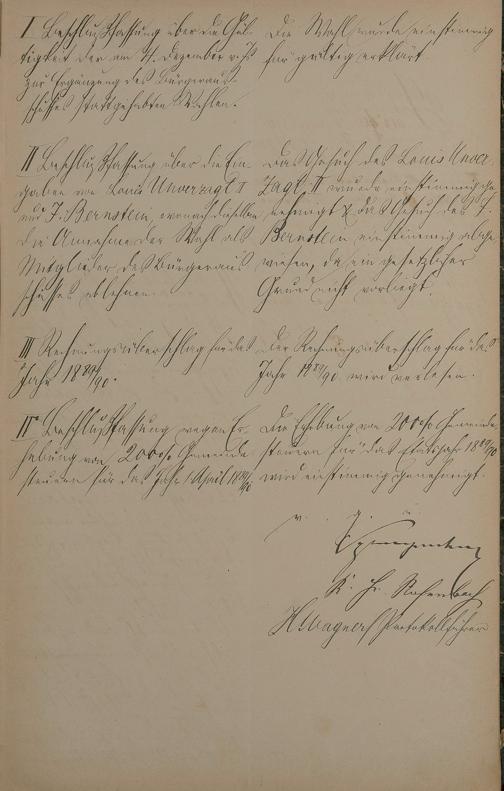 I Beschlußfassung über die Gül-
tigkeit der am 4. Dezember v. Js.
zur Ergänzung des Bürgeraus-
schusses stattgehabten Wahlen.
Die Wahl wurde einstimmig
für gültig erklärt.
II Beschlußfassung über die Ein-
gaben von Louis Unverzagt II
und J. Bernstein, wonach dieselben
die Annahme der Wahl als
Mitglieder des Bürgeraus-
schusses ablehnen.
Das Gesuch des Louis Unver-
zagt II wurde einstimmig ge-
nehmigt & das Gesuch des J.
Bernstein einstimmig abge-
wiesen, da ein gesetzlicher
Grund nicht vorliegt.
III Rechnungsüberschlag für das
Jahr 1889/90.
Der Rechnungsüberschlag für das
Jahr 1889/90 wird verlesen.
IV Beschlußfassung wegen Er-
hebung von 200% Gemeinde-
steuern für das Jahr 1 April 1889/90
Die Erhebung von 200% Gemeinde-
steuern für das Etatsjahr 1889/90
wird einstimmig genehmigt.
v. g. u.
H. Wagner, Protokollführer